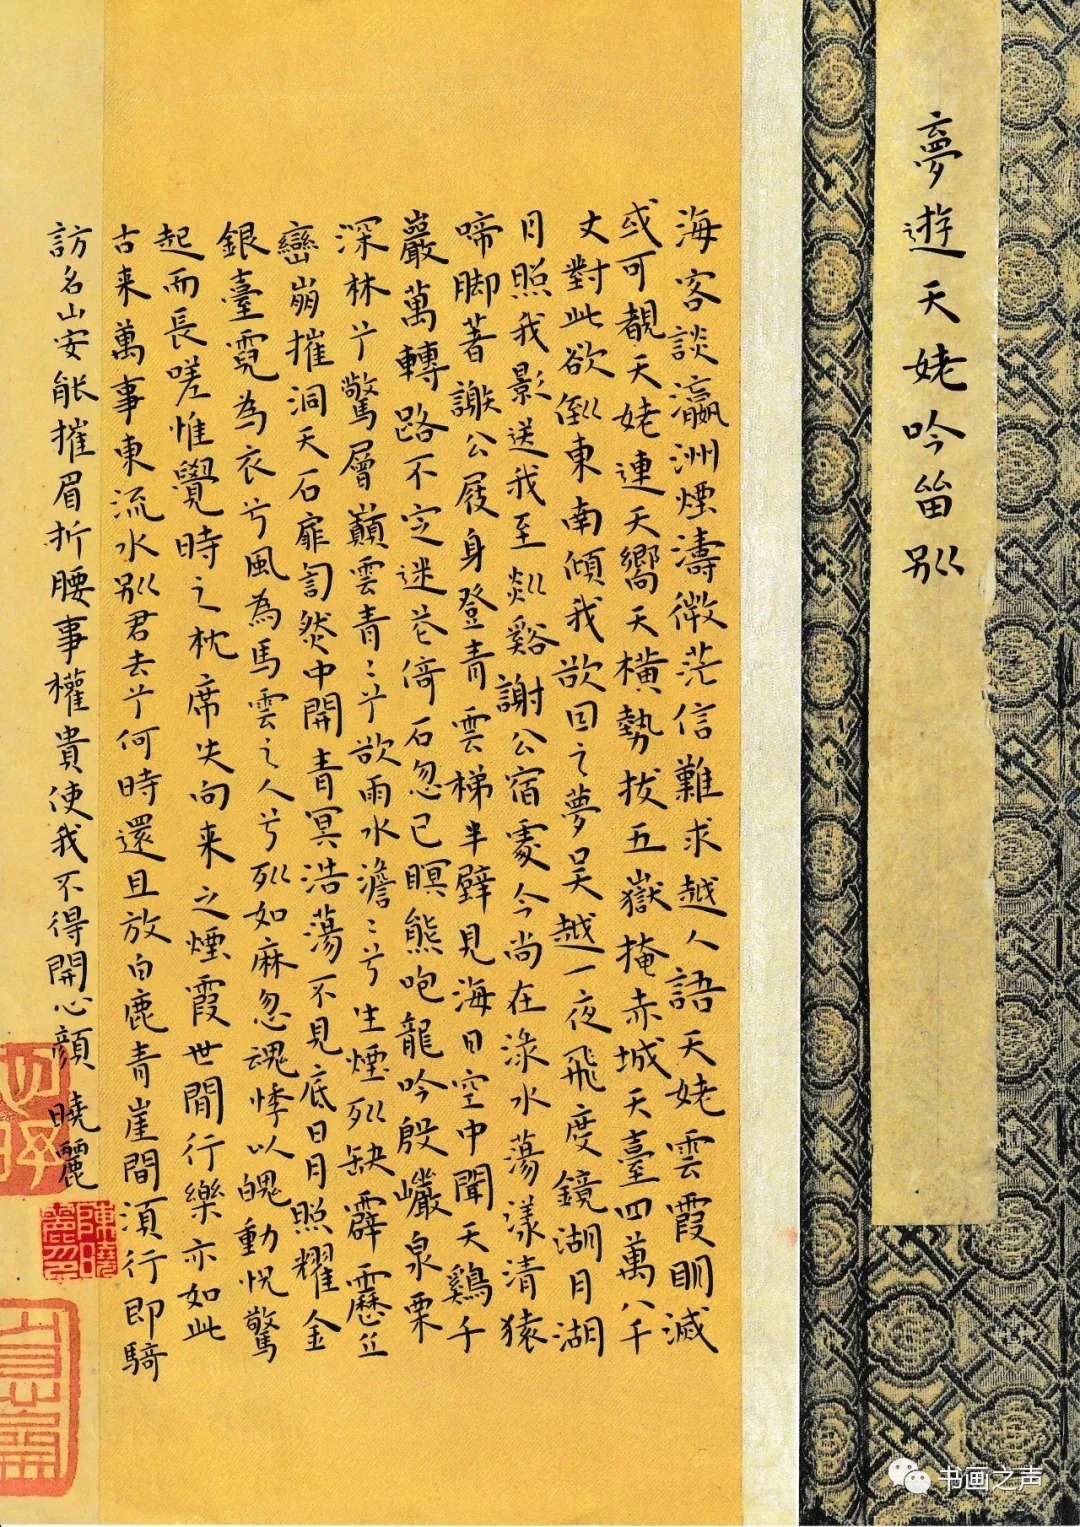 夢遊天姥吟留別
海客談瀛洲煙濤微茫信難求越人語天姥雲霞明滅
或可覩天姥連天嚮天橫勢拔五嶽掩赤城天臺四萬八千
丈對此欲倒東南傾我欲因之夢吳越一夜飛度鏡湖月湖
月照我影送我至剡谿謝公宿處今尚在淥水蕩漾清猿
啼脚著謝公屐身登青雲梯半壁見海日空中聞天鷄千
巖萬轉路不定迷花倚石忽已暝熊咆龍吟殷巖泉栗
深林兮驚層巔雲青〻兮欲雨水澹〻兮生煙列缺霹靂丘
巒崩摧洞天石扉訇然中開青冥浩蕩不見底日月照耀金
銀臺霓為衣兮風為馬雲之人兮列如麻忽魂悸以魄動怳驚
起而長嗟惟覺時之枕席失向来之煙霞世間行樂亦如此
古来萬事東流水別君去兮何時還且放白鹿青崖間須行即騎
訪名山安能摧眉折腰事權貴使我不得開心顏 曉麗
陳曉麗印
书画之声